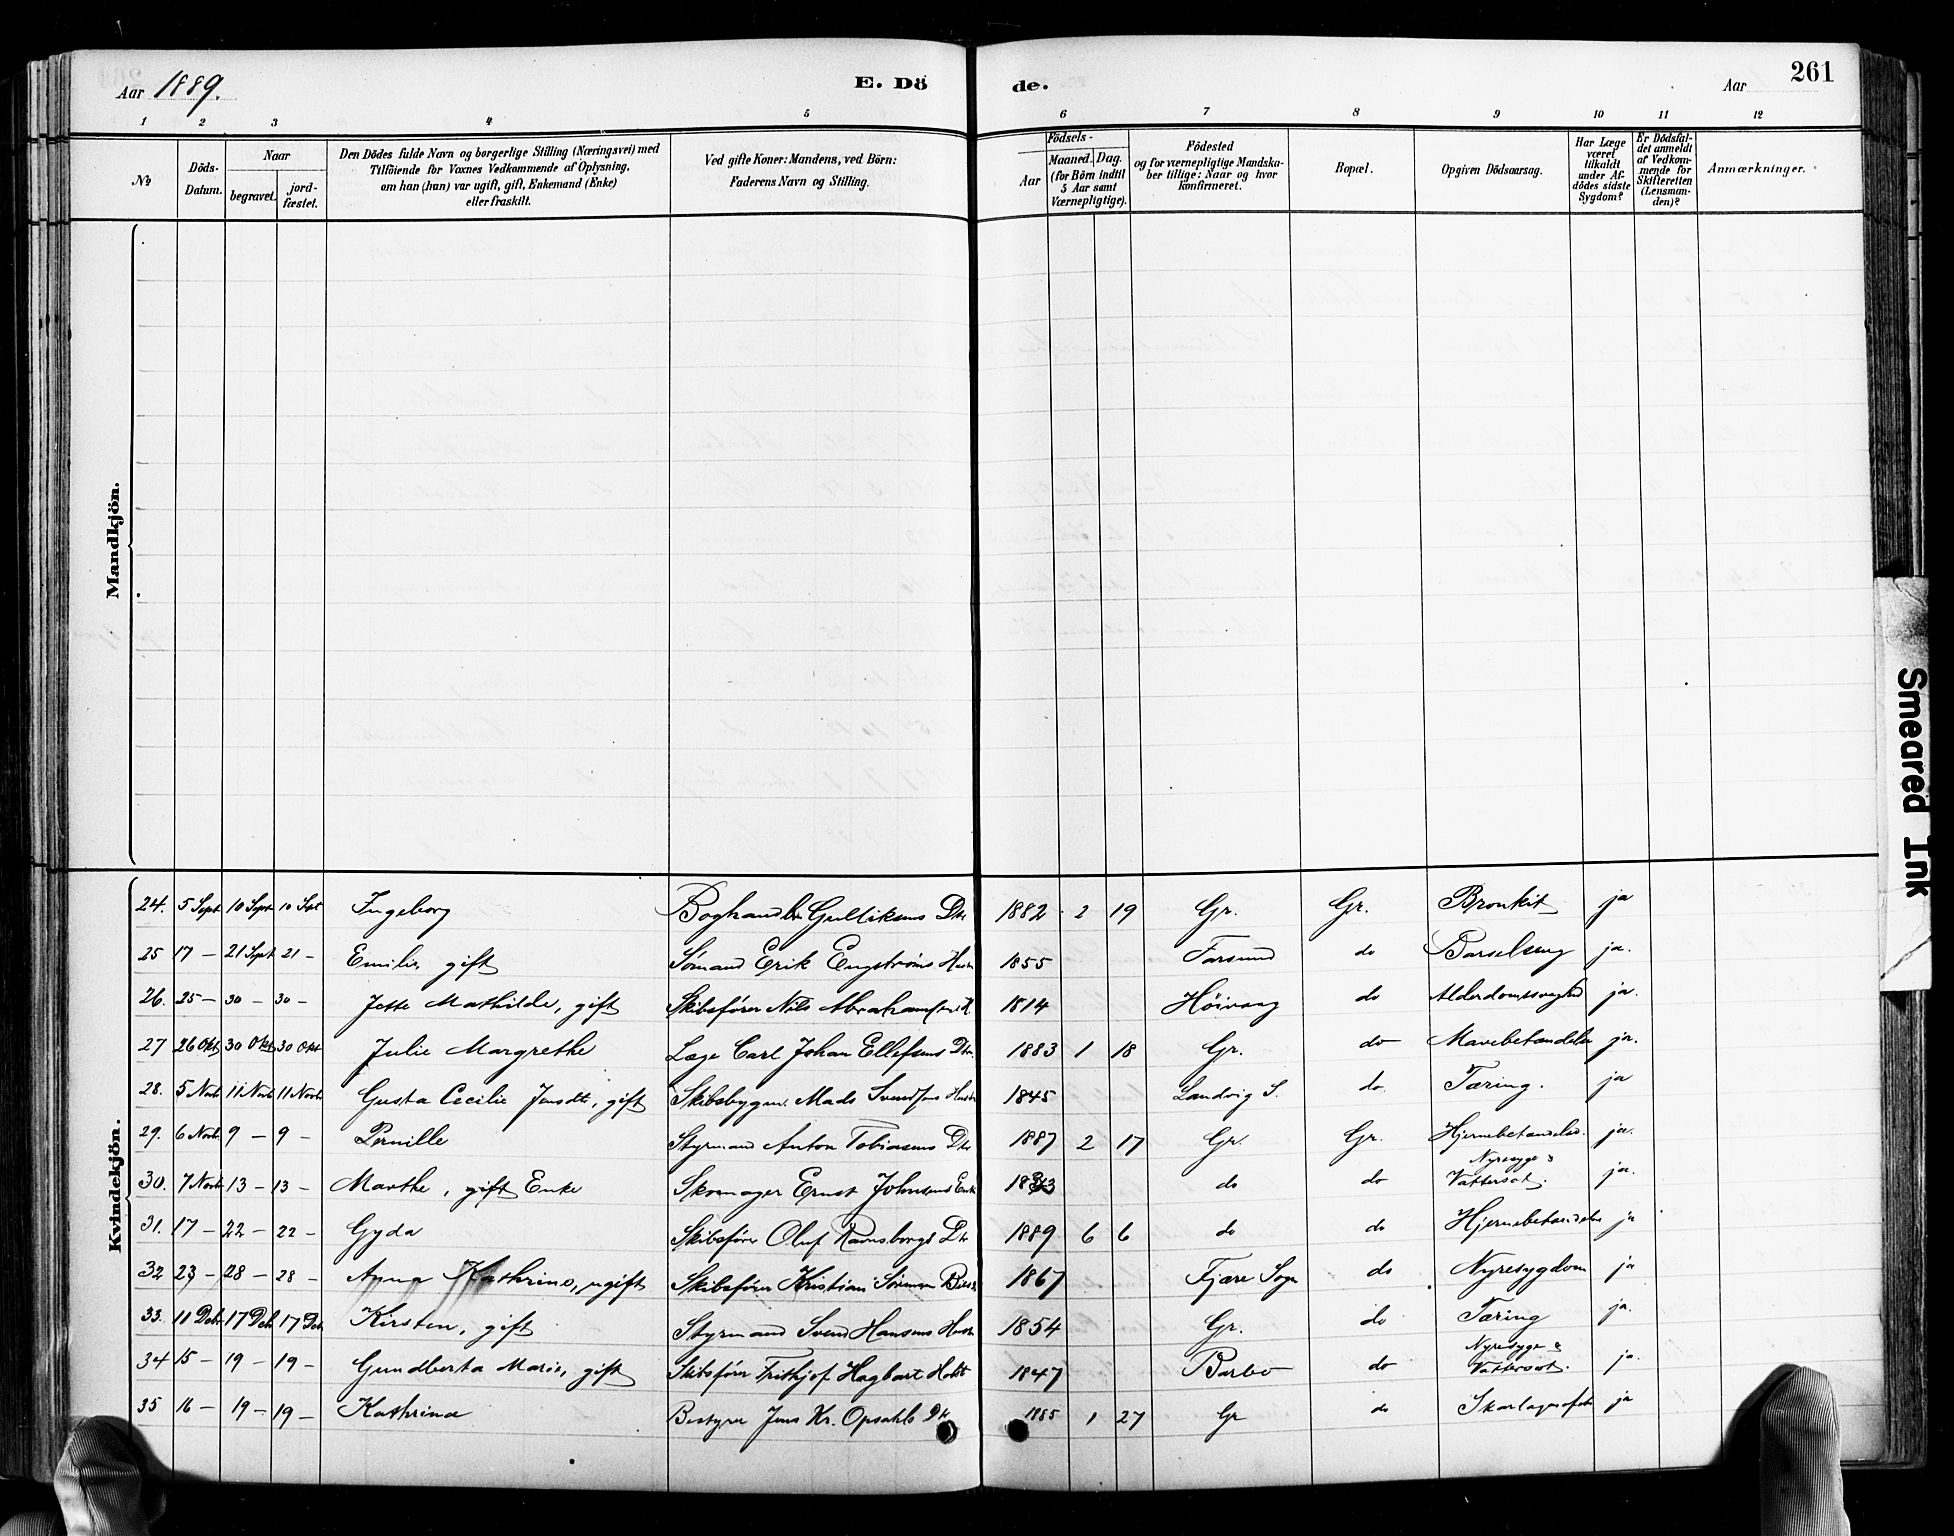 Aar 1889. E. Dö de. Aar 261
1 2 3 4 5 6 7 8 9 10 11 12
No
Döds-Datum.
Naar
begravet.
jord-fæstet.
Den Dödes fulde Navn og borgerlige Stilling (Næringsvei) med
Tilföiende for Voxnes Vedkommende af Oplysning,
om han (hun) var ugift, gift, Enkemand (Enke)
eller fraskilt.
Ved gifte Koner: Mandens, ved Börn:
Faderens Navn og Stilling.
Födsels-
Aar
Maaned. Dag.
(for Börn indtil
5 Aar samt
Værnepligtige).
Födested
og for værnepligtige Mandska-
ber tillige: Naar og hvor
konfirmeret.
Bopæl.
Opgiven Dödsaarsag.
Har Læge
været
tilkaldt
under Af-
dödes sidste
Sygdom?
Er Dödsfal-
det anmeldt
af Vedkom-
mende for
Skifteretten
(Lensman-
den)?
Anmærkninger.
Mandkjön.
Kvindekjön.
24. 5 Sept 10 Sept 10 Sept Ingeborg Boghandler Gulliksens Dtr 1882 2 19 Gr. Gr. Bronkit ja
25 17 – 21 Sept 21 – Emilie, gift Sømand Erik Engstrøms Hustr 1855 Farsund do Barselseng ja.
26. 25 – 30 – 30 – Jette Mathilde, gift Skibsfører Nils Abrahamsens H. 1814 Høivaag do Alderdomssvaghed ja.
27 26 Okt 30 Okt 30 Okt Julie Margrethe Læge Carl Johan Ellefsens Dtr. 1883 1 18 Gr. do Mavebetændelse ja.
28. 5 Novb 11 Novb 11 Novb Gusta Cecilie Jensdtr, gift Skibsbygm. Mads Svendsens Hustr 1845 Landvig S. do Tæring. ja
29. 6 Novb. 9 – 9 – Pernille Styrmand Anton Tobiasens Dtr 1887 2 17 Gr. Gr. Hjernebetændelse. ja.
30. 7 Novb 13 – 13 – Marthe, gift Enke Skomager Ernst Johnsens Enke do do Nyresyge & Vattersot. ja.
31. 17 – 22 – 22 – Gyda Skibsfører Oluf Ravnsborgs Dtr 1889 6 6 do do Hjernebetændelse ja
32 23 – 28 – 28 – Anna Kathrine, ugift Skibsfører Kristian Sørensen 1867 Fjære Sogn do Nyresygdom ja
33. 11 Debr 17 Deb 17 Deb Kirsten, gift Styrmand Svend Hansens Hustr 1854 Gr. do Tæring ja.
34 15 – 19 – 19 – Gundberta Marie, gift Skibsfører Frithjof Hagbart Holst 1847 Barbo do Nyresyge & Vattersot. ja.
35 16 – 19 – 19 – Kathrine Bestyrer Jens Kr. Opsahls Dtr 1885 1 27 Gr do Skarlagensfeber ja
Smeared Ink